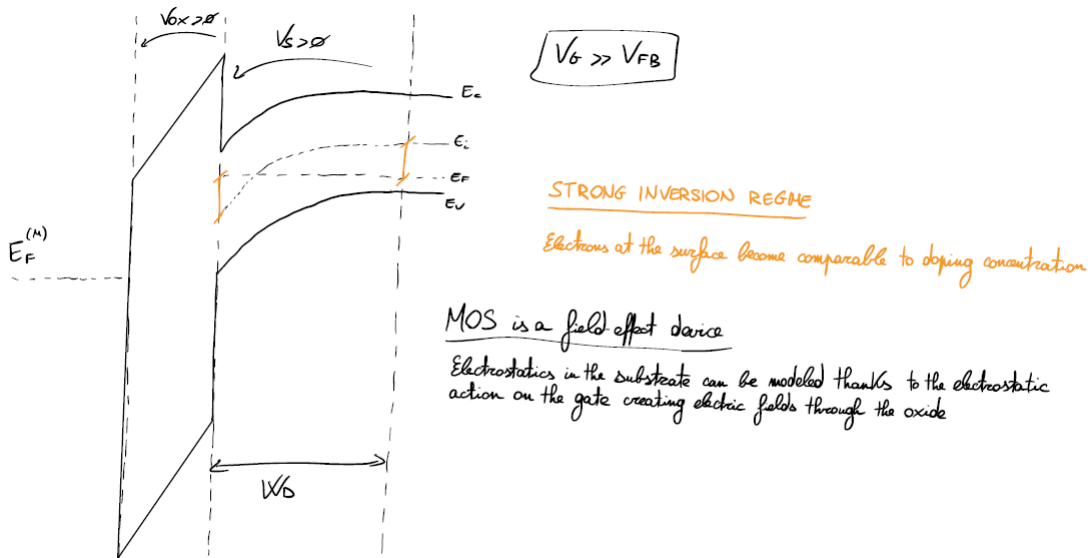 Vox>∅
Vs>∅
VG >> VFB
Ec
Ei
EF
Ev
EF(M)
STRONG INVERSION REGIME
Electrons at the surface become comparable to doping concentration
MOS is a field-effect device
Electrostatics in the substrate can be modeled thanks to the electrostatic
action on the gate creating electric fields through the oxide
WD